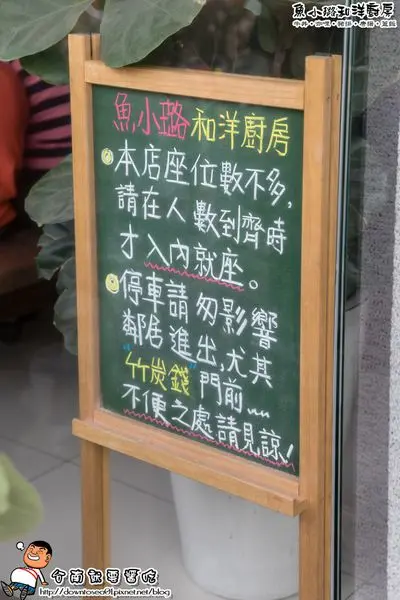 魚小璐和洋廚房
魚小璐 和洋廚房
本店座位數不多，
請在人數到齊時
才入內就座。
停車請勿影響
鄰居進出，尤其
"竹炭錢"門前……
不便之處請見諒！
台南就要醬吃
http://downtoseafl.pixnet.net/blog